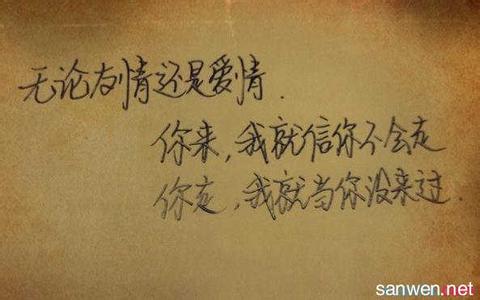 无论友情还是爱情.
你来,我就信你不会走
你走,我就当你没来过.
sanwen.net